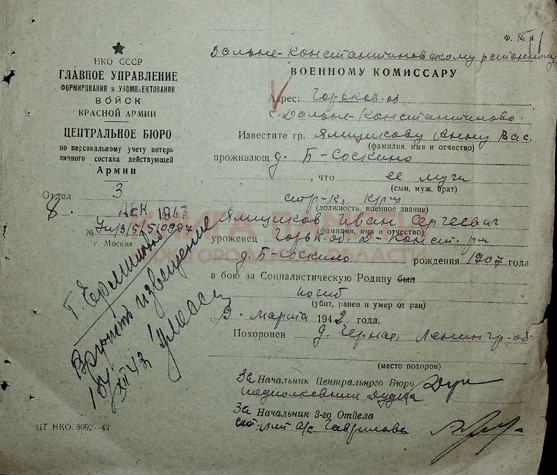 Ф. № А
НКО СССР
ГЛАВНОЕ УПРАВЛЕНИЕ
ФОРМИРОВАНИЯ и УКОМПЛЕКТОВАНИЯ
ВОЙСК
КРАСНОЙ АРМИИ
ЦЕНТРАЛЬНОЕ БЮРО
по персональному учету потерь
личного состава действующей
Армии
Отдел 3
8. ДЕК 1943
г. Москва
Дальне-Константиновскому районному
ВОЕННОМУ КОМИССАРУ
Адрес: Горьков. об
с. Дальне-Константиново
Известите гр. Ямщикову Анну Вас.
(фамилия, имя и отчество)
проживающ д. Б-Соскино
, что ее муж
(сын, муж, брат)
кр-ц
(должность, военное звание)
Ямщиков Иван Сергеевич
(фамилия, имя и отчество)
уроженец Горьк. об. Д-Конст. р-н
д. Б-Соскино рождения 1907 года
в бою за Социалистическую Родину был
погиб
(убит, ранен и умер от ран)
9 марта 1942 года.
Похоронен д. Черная, Ленингр. об.
(место похорон)
За Начальник Центрального Бюро
подполковник
За Начальник 3-го Отдела
Гаврилова
Вручить извещение
ЦТ НКО. 8992—42